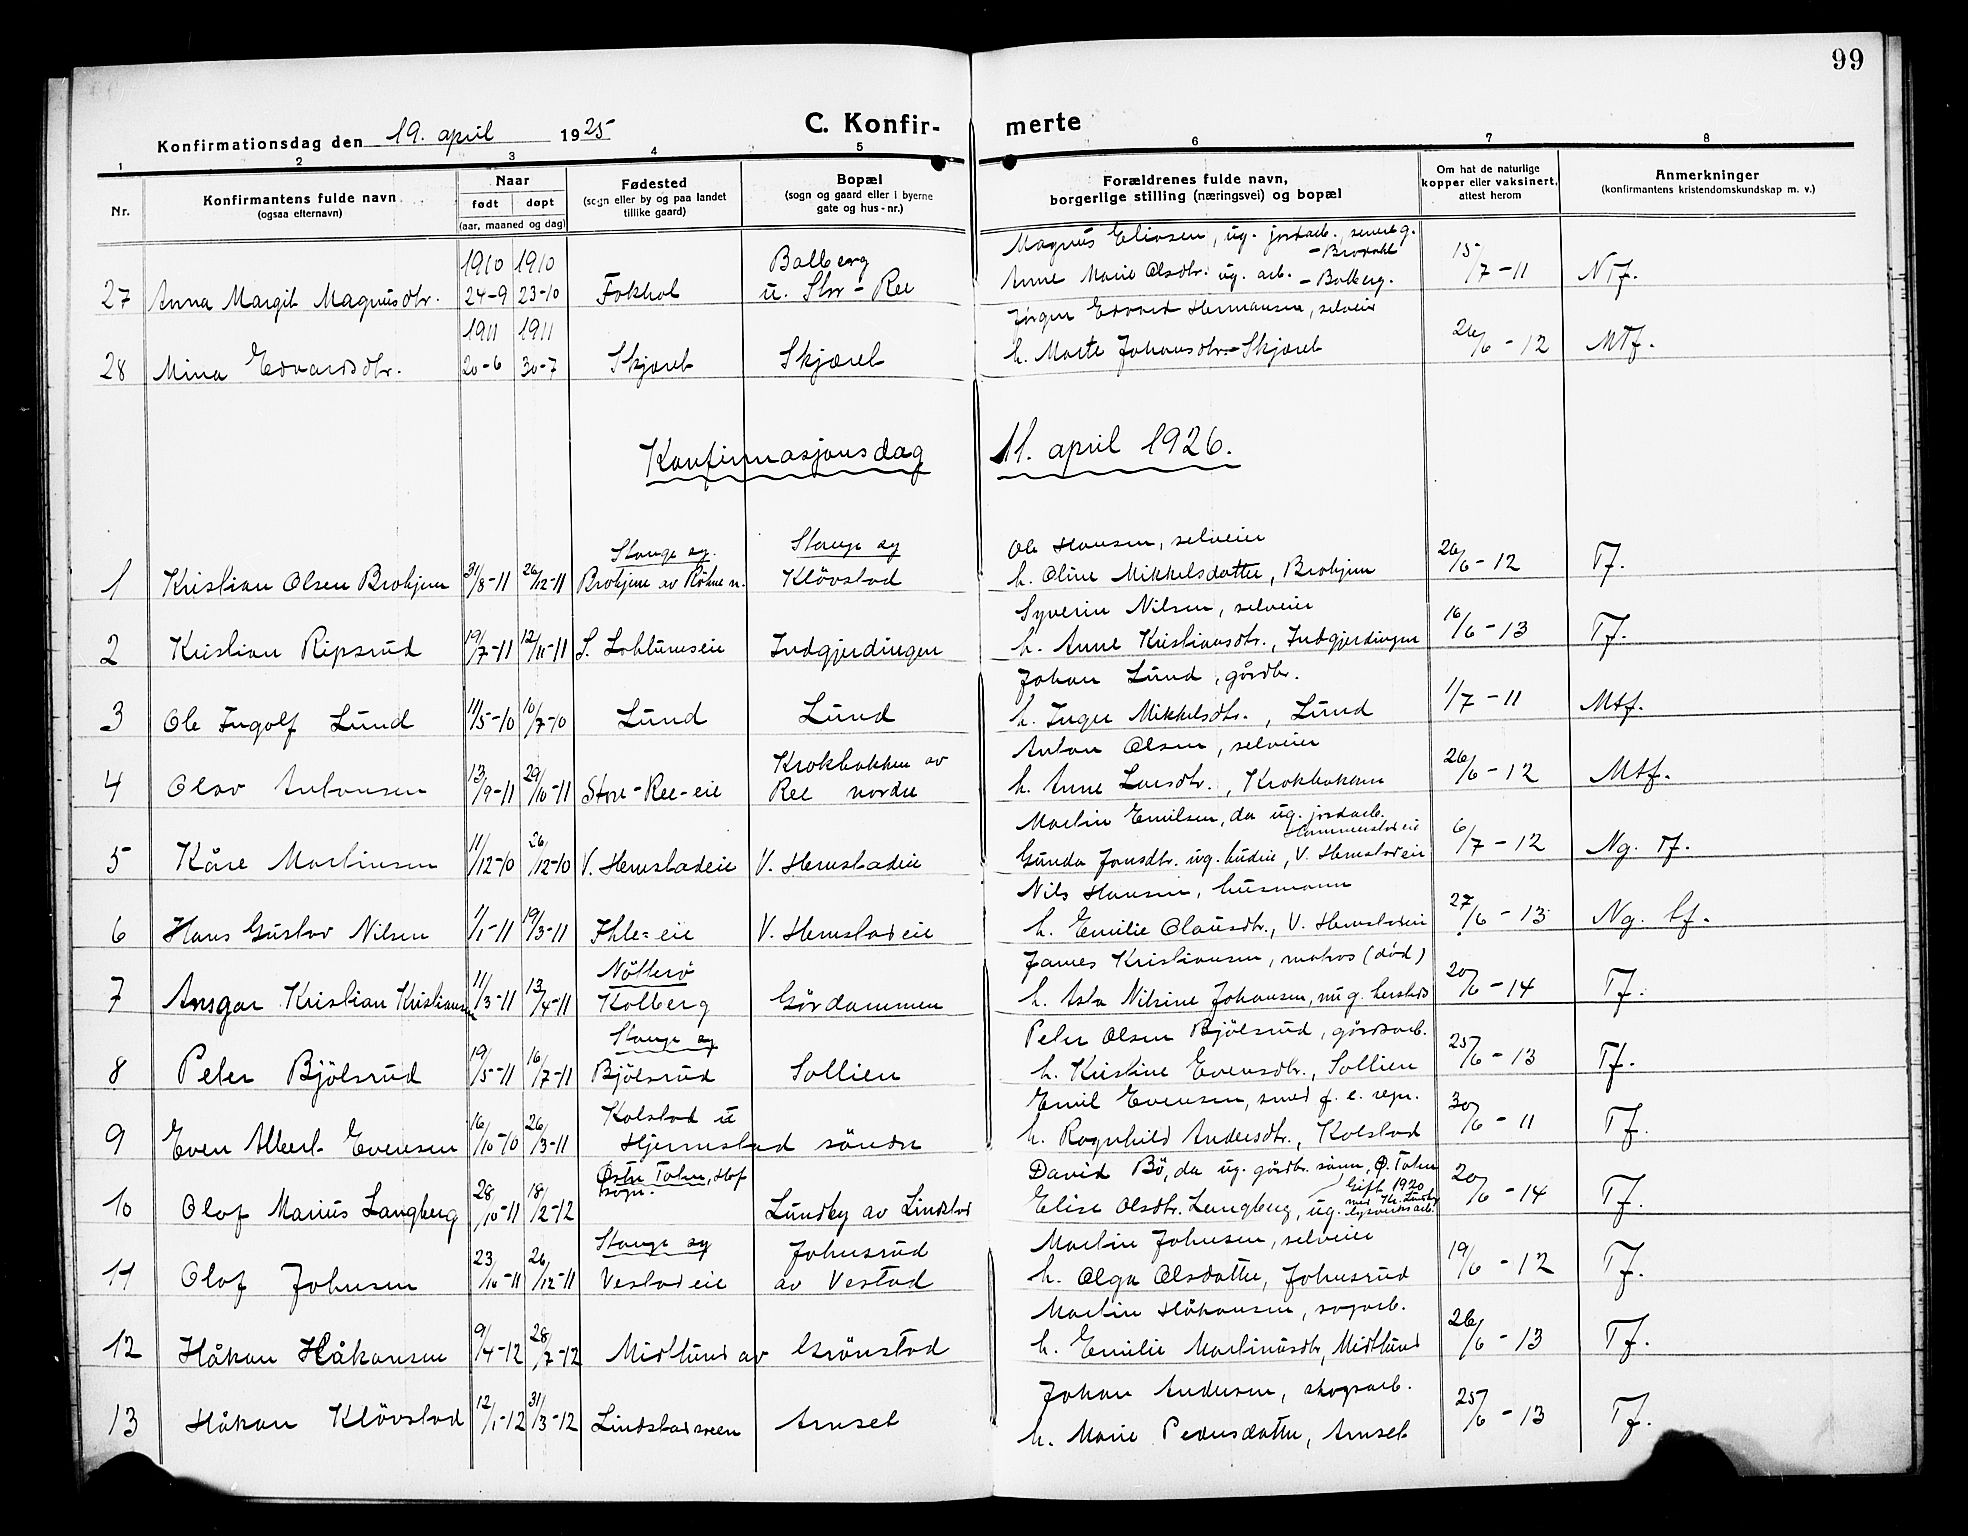 99
Konfirmationsdag den 19. april 1925
C. Konfirmerte
1 2 3 4 5 6 7 8
Nr.
Konfirmantens fulde navn
(ogsaa efternavn)
Naar
født døpt
(aar, maaned og dag)
Fødested
(sogn eller by og paa landet
tillike gaard)
Bopæl
(sogn og gaard eller i byerne
gate og hus-nr.)
Forældrenes fulde navn,
borgerlige stilling (næringsvei) og bopæl
Om hat de naturlige
kopper eller vaksinert,
attest herom
Anmerkninger
(konfirmantens kristendomskundskap m. v.)
1910 1910 Balberg Magnus Eliasen, ug. jordarb.,
27 Anna Margit Magnusdtr. 24-9 23-10 Fokhol u. Stor-Ree Anne Marie Olsdtr. ug. arb. - Balberg. 15/7-11 Ntf.
1911 1911 Jørgen Edvard Hermansen, selveier
28 Mina Edvardsdtr. 20-6 30-7 Skjæret Skjæret h. Marte Johansdtr. - Skjæret 26/6-12 Mtf.
Konfirmasjonsdag 11. april 1926.
Stange sg. Stange sg Ole Hansen, selveier
1 Kristian Olsen Brohjem 31/8-11 26/12-11 Brohjem av Röhne n. Klövstad h. Oline Mikkelsdatter, Brohjem 26/6-12 Tf.
Syverin Nilsen, selveier
2 Kristian Ripsrud 19/7-11 12/11-11 S. Lohtuneie Indgjerdingen h. Anne Kristiansdtr., Indgjerdingen 16/6-13 Tf.
Johan Lund, gårdbr.
3 Ole Ingolf Lund 11/5-10 10/7-10 Lund Lund h. Inger Mikkelsdtr., Lund 1/7-11 Mtf.
Krokbakken av Anton Olsen, selveier
4 Olav Antonsen 13/9-11 29/10-11 Store-Ree-eie Ree nordre h. Anne Larsdtr., Krokbakken 26/6-12 Mtf.
Martin Emilsen, da ug. jordarb.
5 Kåre Martinsen 11/12-10 26/12-10 V. Hemstadeie V. Hemstadeie Gunda Jonsdtr. ug. budeie, V. Hemstadeie 6/7-12 Ng. tf.
Nils Hansen, husmann
6 Hans Gustav Nilsen 1/1-11 19/3-11 Ihle-eie V. Hemstadeie h. Emilie Clausdtr., V. Hemstadeie 27/6-13 Ng. tf.
Nötterö James Kristiansen, matros (död)
7 Ansgar Kristian Kristiansen 11/3-11 13/4-11 Kolberg Gördammen h. Asta Nilsine Johansen, 20/6-14 Tf.
Stange sg Peter Olsen Bjölsrud, gårdsarb.
8 Peter Bjölsrud 19/5-11 16/7-11 Bjölsrud Sollien h. Kristine Evensdtr., Sollien 25/6-13 Tf.
Kolstad u Emil Evensen, smed f. e. repr.
9 Even Albert Evensen 16/10-10 26/3-11 Hjemstad söndre h. Ragnhild Andersdtr., Kolstad 30/6-11 Tf.
Østre Toten, Hof sogn. David Bö, da ug. gårdbr. sönn, Ø. Toten
10 Olaf Marius Langberg 28/10-11 18/2-12 Lundby av Lindstad Elise Olsdtr. Langberg, ug. Gift 1920 20/6-14 Tf.
Stange sg Johnsrud Martin Johnsen, selveier
11 Olaf Johnsen 23/10-11 26/12-11 Vestadeie av Vestad h. Olga Olsdatter, Johnsrud 19/6-12 Tf.
Martin Håkonsen, sagarb.
12 Håkon Håkonsen 9/4-12 28/7-12 Midtlund av Grönstad h. Emilie Martinusdtr, Midtlund 26/6-13 Tf.
Johan Andersen, skogsarb.
13 Håkon Klövstad 12/1-12 31/3-12 Lindstadsveen Arnset h. Marie Pedersdatter, Arnset 25/6-13 Tf.